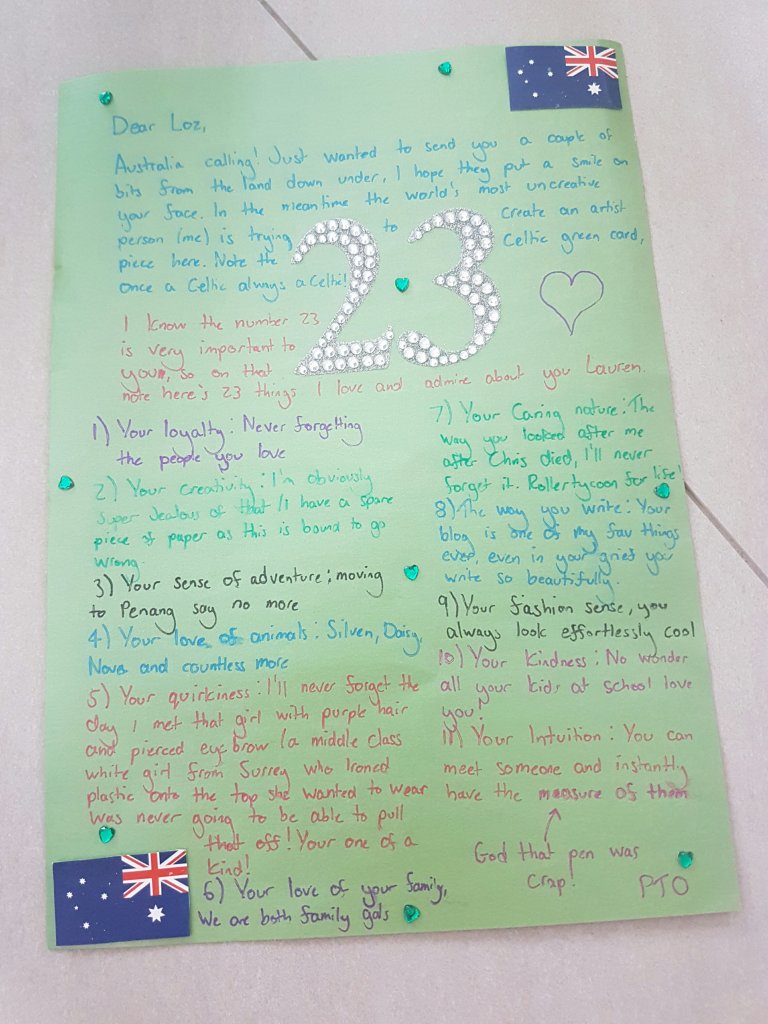 Dear Loz,
Australia calling! Just wanted to send you a couple of
bits from the land down under, I hope they put a smile on
your face. In the meantime the world's most uncreative
person (me) is trying to create an artist
piece here. Note the Celtic green card,
once a Celtic always a Celtic!
23
I know the number 23
is very important to
you, so on that
note here's 23 things I love and admire about you Lauren.
1) Your loyalty: Never forgetting
the people you love
2) Your creativity: I'm obviously
super jealous of that (i have a spare
piece of paper as this is bound to go
wrong.
3) Your sense of adventure; moving
to Penang say no more
4) Your love of animals: Silven, Daisy,
Nova and countless more
5) Your quirkiness: I'll never forget the
day I met that girl with purple hair
and pierced eyebrow (a middle class
white girl from Surrey who Ironed
plastic onto the top she wanted to wear
was never going to be able to pull
that off! Your one of a
kind!
6) Your love of your family,
We are both family gals
7) Your Caring nature: The
way you looked after me
after Chris died, I'll never
forget it. Rollertycoon for life!
8) The way you write: Your
blog is one of my fav things
ever, even in your grief you
write so beautifully.
9) Your fashion sense, you
always look effortlessly cool
10) Your Kindness: No wonder
all your kids at school love
you!
11) Your Intuition: You can
meet someone and instantly
have the measure of them
God that pen was
crap!
PTO